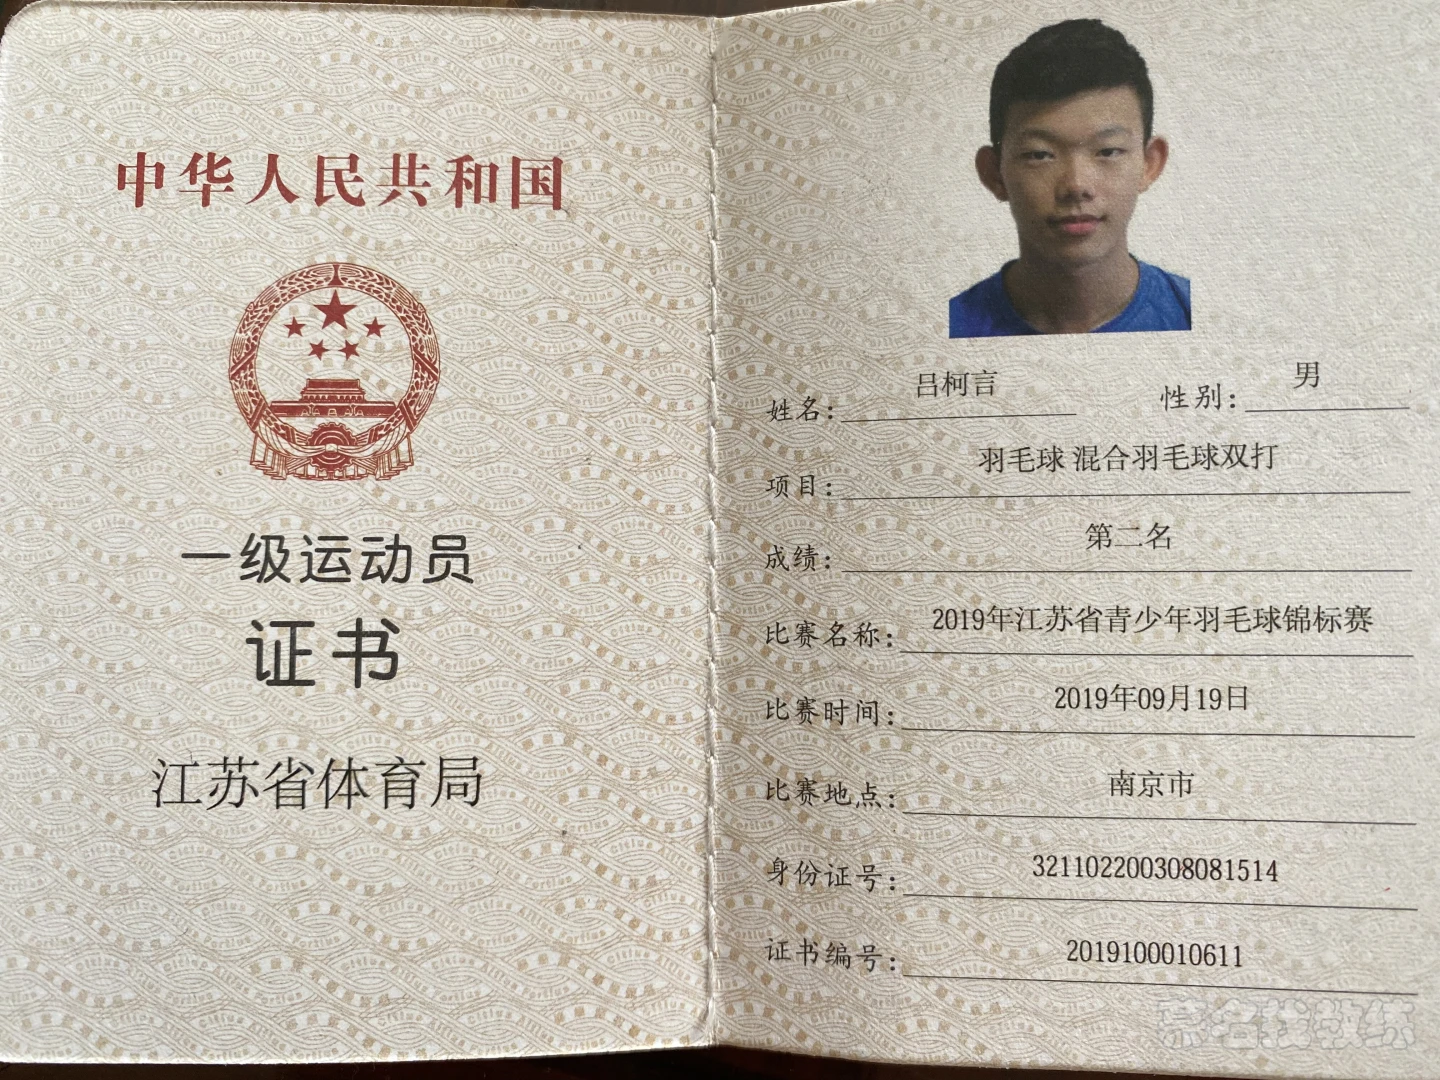 中华人民共和国
一级运动员
证书
江苏省体育局
姓名：吕柯言 性别：男
项目：羽毛球 混合羽毛球双打
成绩：第二名
比赛名称：2019年江苏省青少年羽毛球锦标赛
比赛时间：2019年09月19日
比赛地点：南京市
身份证号：321102200308081514
证书编号：2019100010611
慕名找教练